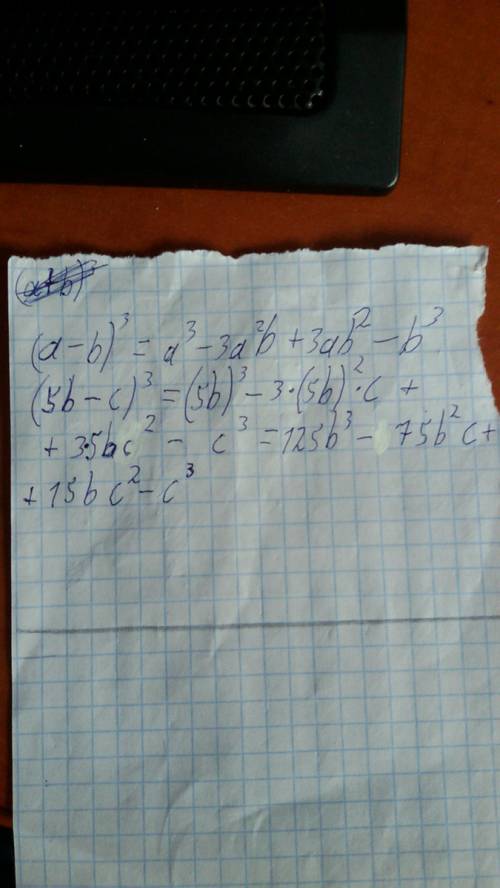 (a-b)³ = a³ - 3a²b + 3ab² - b³
(5b - c)³ = (5b)³ - 3·(5b)²·c +
+ 3·5bc² - c³ = 125b³ - 75b²c +
+ 15bc² - c³